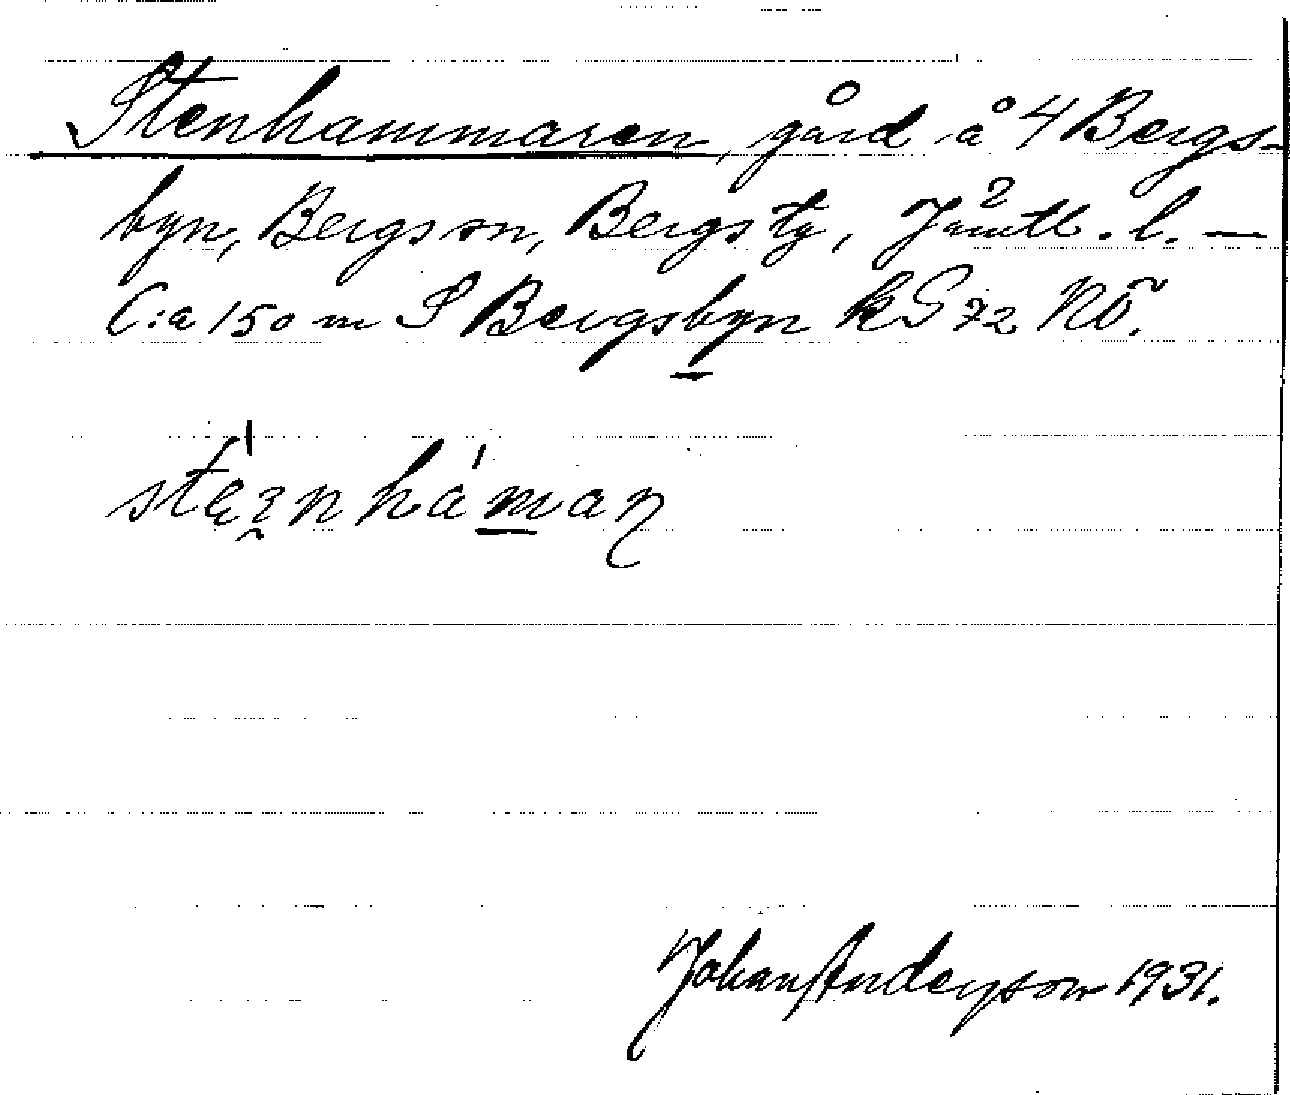 Stenhammaren, gård å 4 Bergs-
byn, Bergs sn, Bergs tg, Jämtl. l. —
C:a 150 m S Bergsbyn kS 72 NÖ.
Johan Anderson 1931.